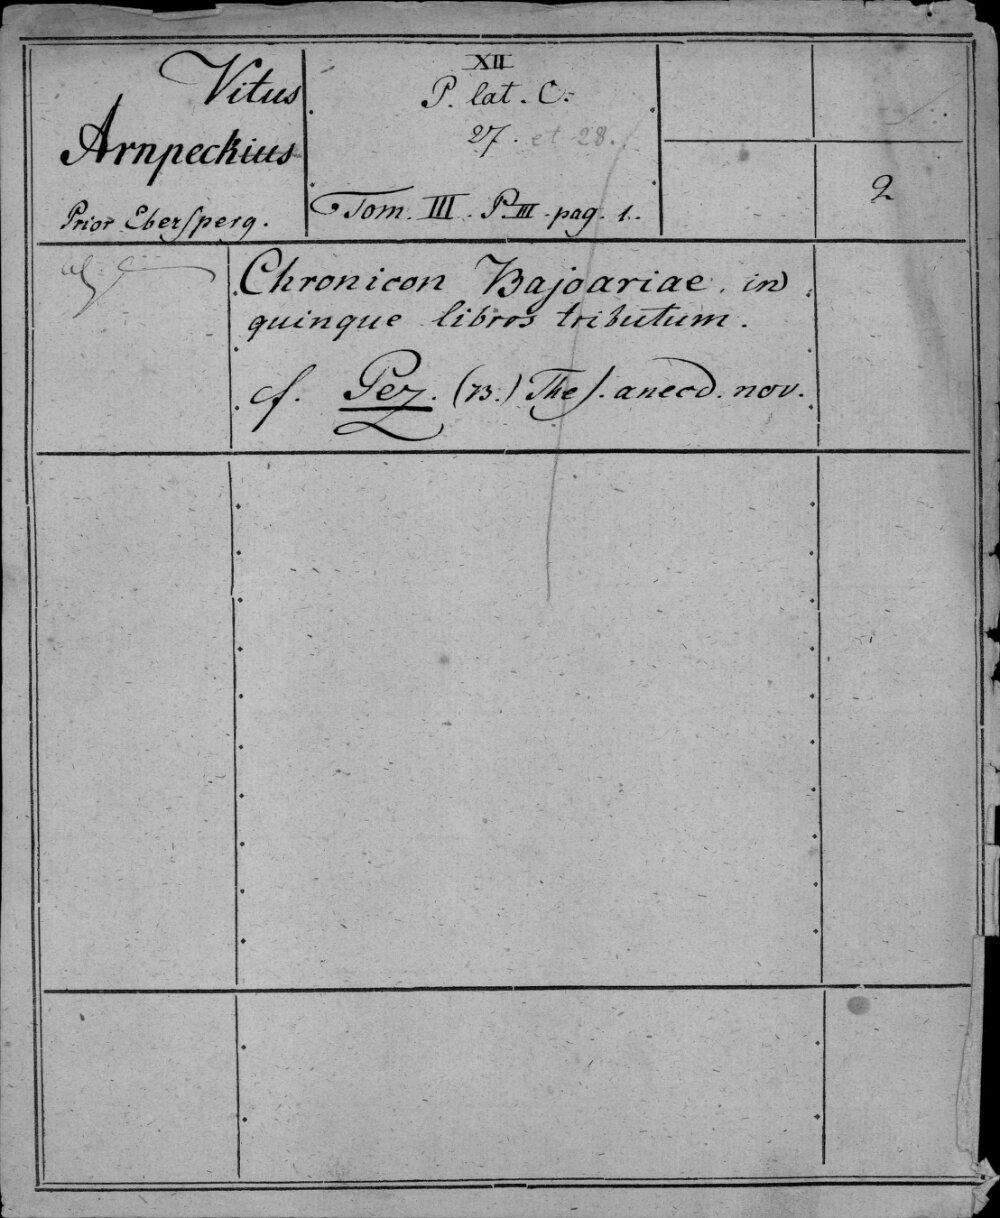 Vitus
Arnpeckius
Prior Ebersperg.
XII
P. lat. C.
27. et 28.
Tom. III. P. III. pag. 1.
2
Chronicon Bajoariae in
quinque libros tributum.
cf. Pez. (73.) Thes. anecd. nov.